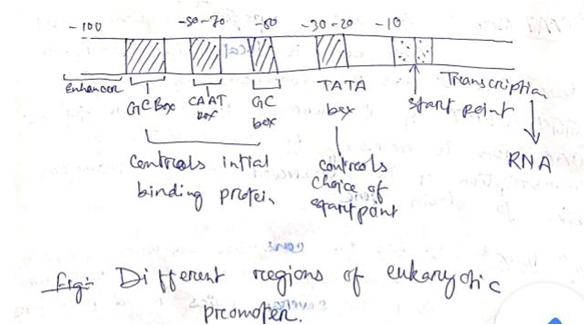 -100 -90-70 -60 -30-20 -10
Enhancer GC Box CAAT Box GC box TATA box Start point Transcription
RNA
controls intial
binding protein
controls
choice of
startpoint
Fig:- Different regions of eukaryotic
promoter.